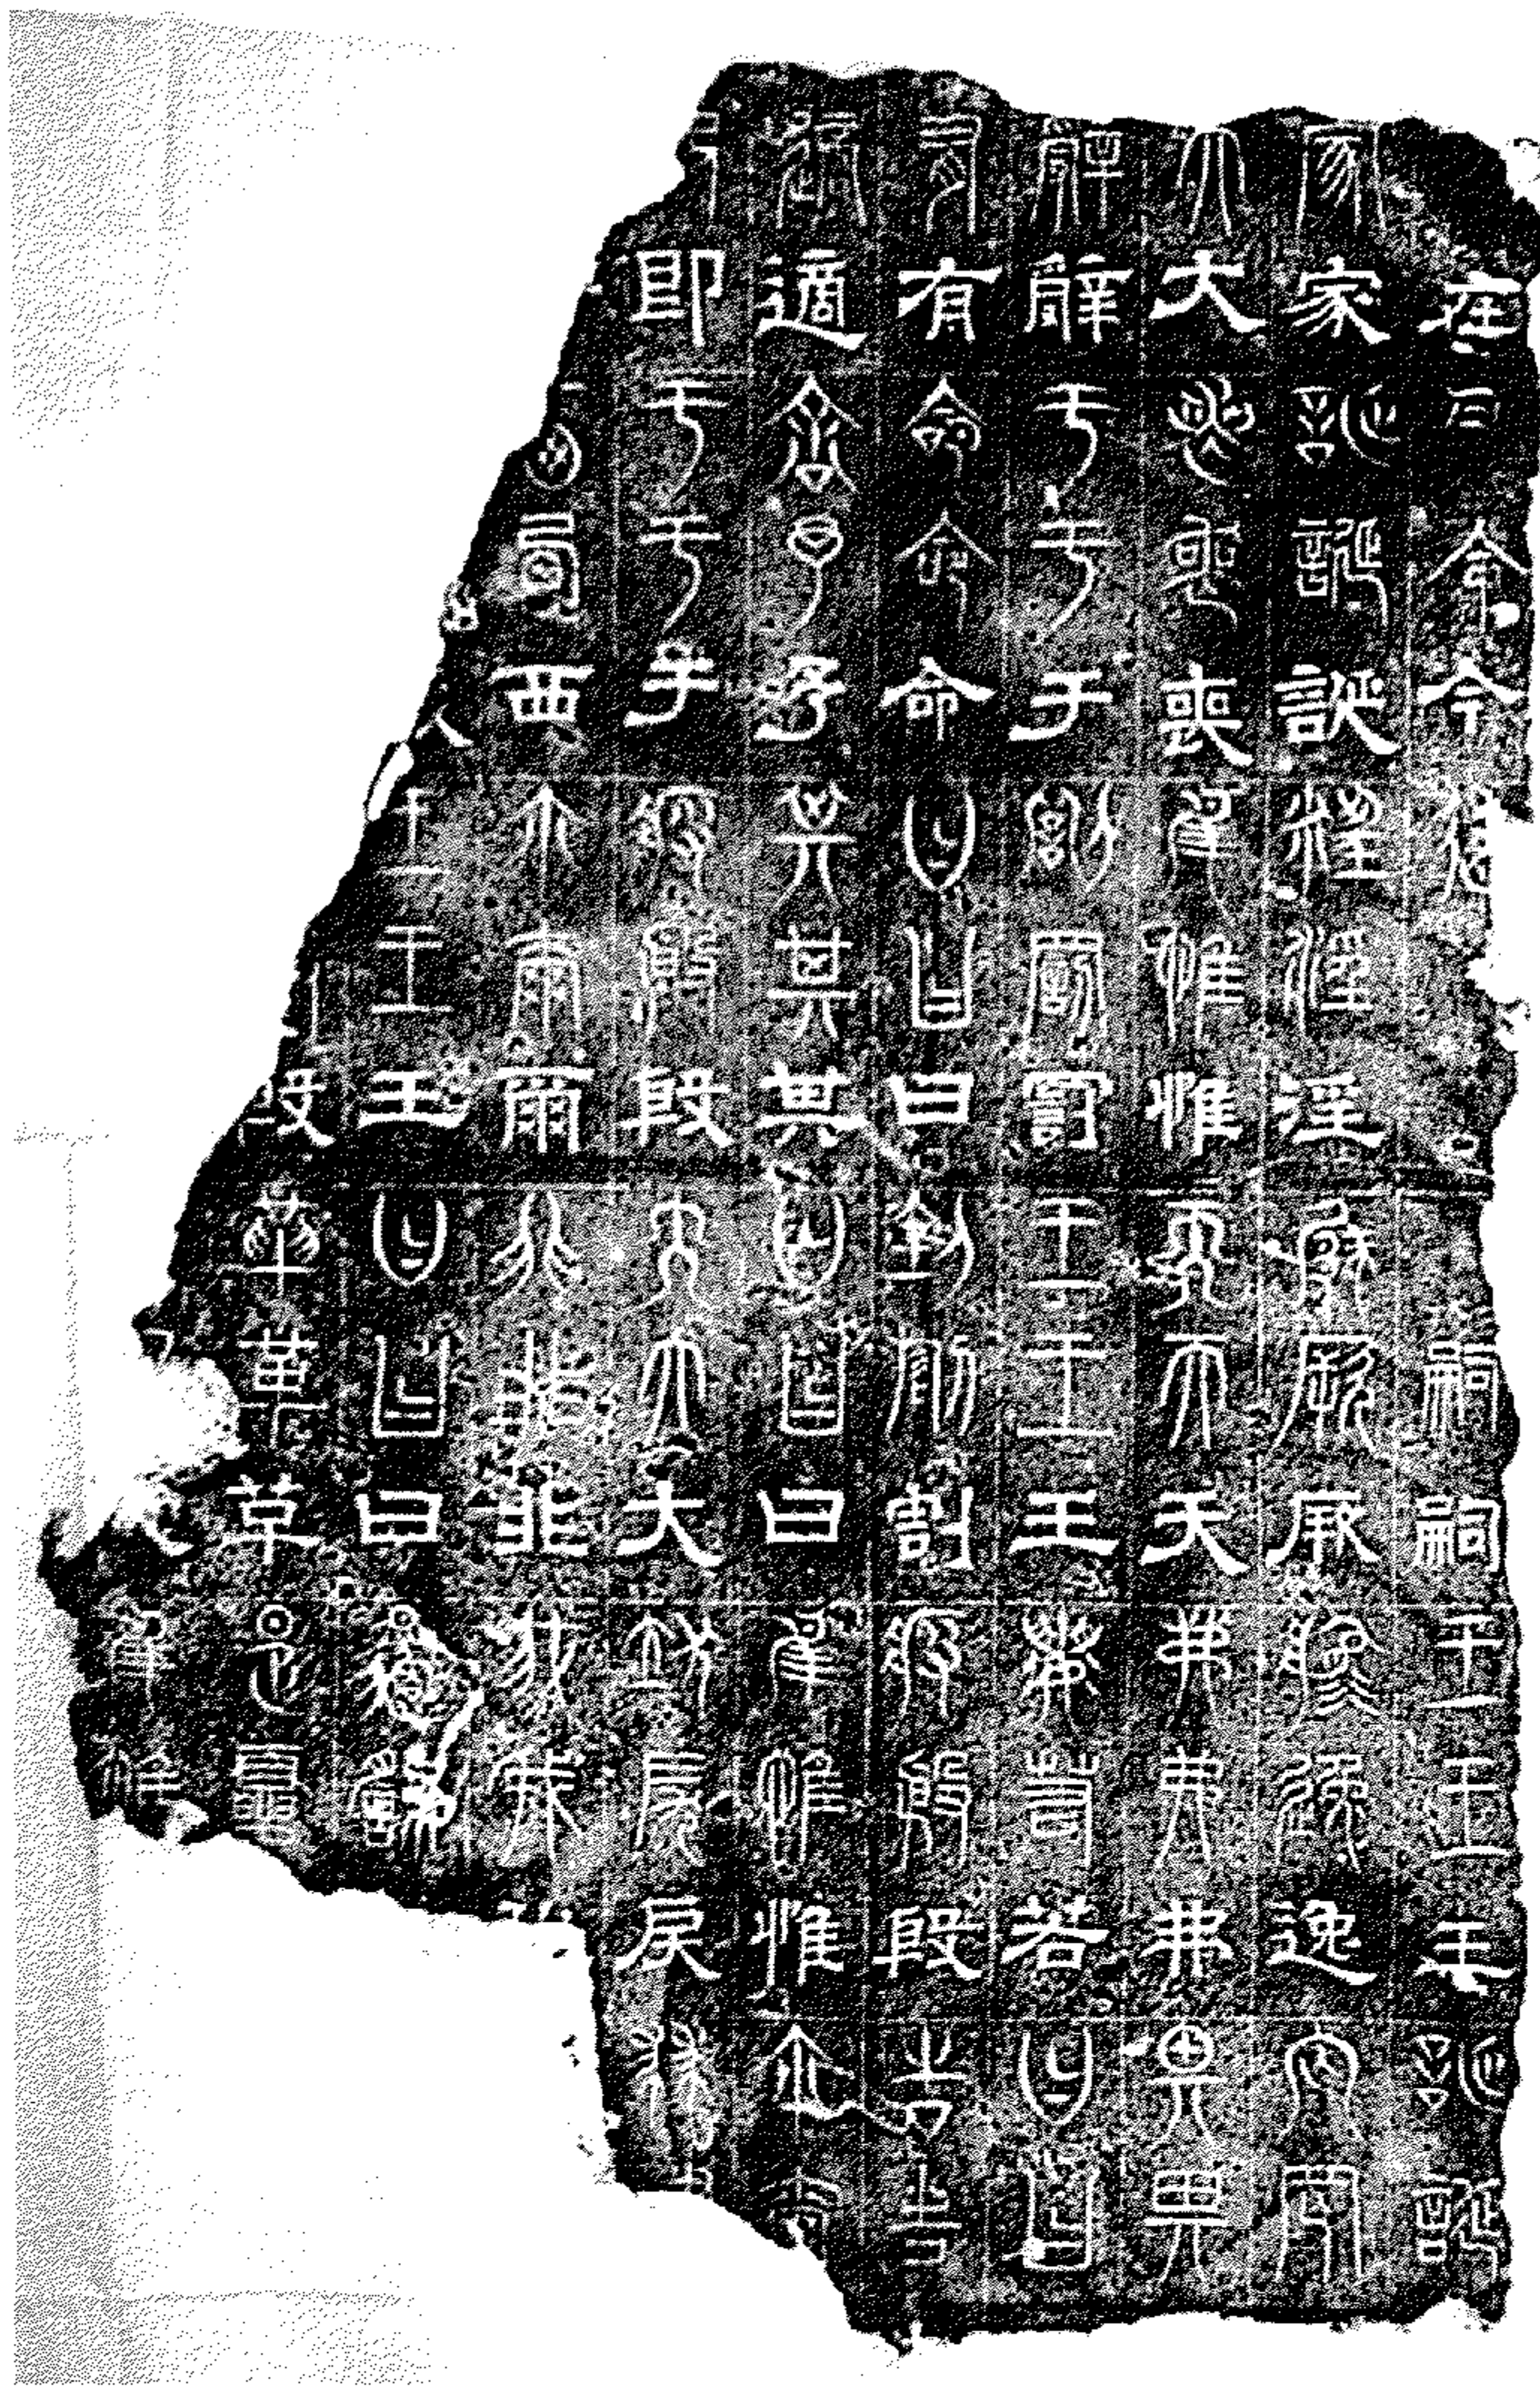 在今今後嗣嗣王王王誕誕
家家誕誕誕淫淫淫厥厥厥逸逸逸罔罔
大大喪喪喪惟惟惟天天天弗弗弗畀畀
辭辭于于于罰罰罰王王王若若若曰曰
有有命命命曰曰曰割割割殷殷殷告告
適適余予予其其其曰曰曰惟惟惟尒爾
即即于于于殷殷殷大大大戾戾戾肆
西西西尒爾爾非非非我我
人王王王曰曰曰
殷革革革夏夏
惟惟